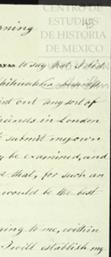 CENTRO DE
ESTUDIOS
DE HISTORIA
DE MEXICO
rning
to say that I did
out any sort of
riends in London
submit my own
be examined, and
d that, for such an
would be the best
ing to me, within
I will establish my